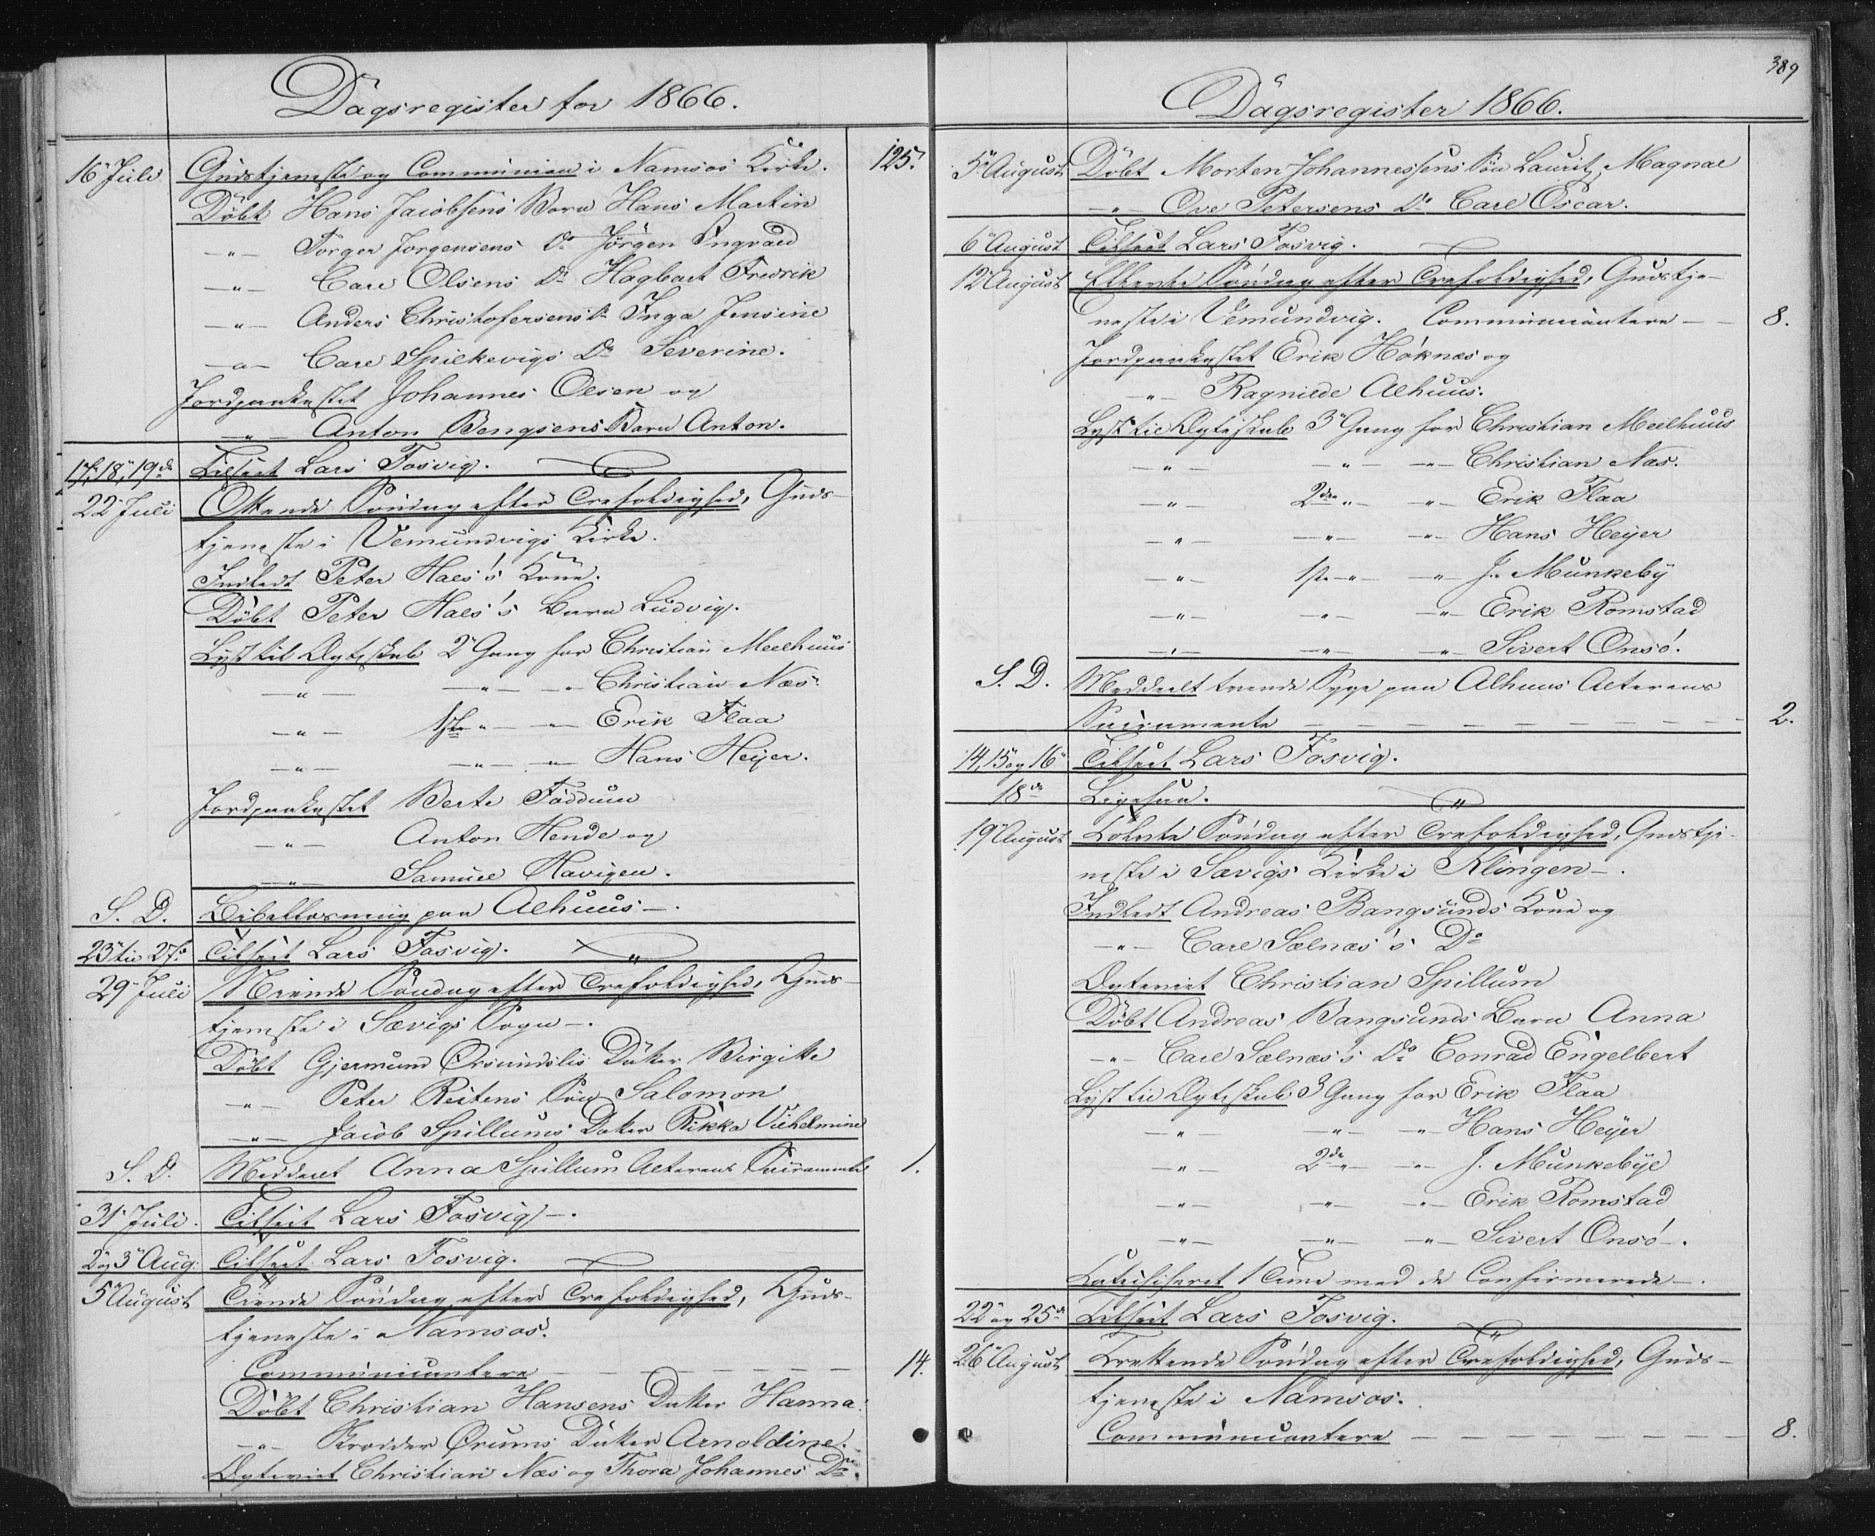 Dagsregister for 1866.
16 Juli Gudstjeneste og Communion i Namsos Kirke. 125.
Döbt Hans Jacobsens Barn Hans Martin
-"- Torger Jorgensens Do Jörgen Ingvald
-"- Carl Olsens Do Hagbart Fredrik
-"- Anders Christofersens Do Inga Jensine
-"- Carl Spilkevigs Do Severine.
Jordpaakastet Johannes Olsen og
-"- Anton Bengsens Barn Anton.
17, 18, 19de Tilseet Lars Fosvig.
22 Juli Ottende Söndag efter Trefoldighed, Guds-
tjeneste i Vemundvigs Kirke.
Indledt Peter Hals's Kone.
Döbt Peter Hals's Barn Ludvig.
Lyst til Ægteskab 2 Gang for Christian Meelhuus
-"- -"- -"- Christian Næs.
-"- 1ste -"- -"- Erik Flaa
-"- -"- -"- Hans Heyer.
Jordpaakastet Berte Födduu
-"- Anton Hende og
-"- Samuel Havigen.
S. D. Bibellæsning paa Alhuus.
23 til 27de Tilseet Lars Fosvig. "
29 Juli Niende Söndag efter Trefoldighed, Guds-
tjeneste i Sævigs Sogn.
Döbt Gjermund Örsundslis Datter Birgitte
-"- Peter Reitens Sön Salomon
-"- Jacob Spillums Datter Rikka Vilhelmine
S. D. Meddeelt Anna Spillum Alterens Sacramente 1.
31 Juli. Tilseet Lars Fosvig.
2 og 3 Aug. Tilseet Lars Fosvig.
5 August Tiende Söndag efter Trefoldighed, Guds-
tjeneste i Namsos.
Communicantere 14.
Döbt Christian Hansens Datter Hanna.
-"- Ørums Datter Arnoldine.
Ægteviet Christian Næs og Thora Johannes Dr.
389
Dagsregister 1866.
5 August Döbt Morten Johannessens Sön Lauritz Magnal
-"- Ove Petersens Do Carl Oscar.
6 August Tilseet Lars Fosvig.
12 August Ellevte Söndag efter Trefoldighed, Gudstje-
neste i Vemundvig. Communicantere - - 8.
Jordpaakastet Erik Höknæs og
-"- Ragnilde Alhuus.
Lyst til Ægteskab 3 Gang for Christian Meelhuus
-"- -"- -"- Christian Næs.
-"- 2den -"- -"- Erik Flaa
-"- -"- -"- Hans Heyer
-"- 1ste -"- -"- J. Munkeby
-"- -"- -"- Erik Romstad
-"- -"- -"- Sivert Onsö.
S. D. Meddeelt tvende Syge paa Alhuus Alterens
Sacramente 2.
14, 15 og 16 Tilseet Lars Fosvig.
18de Ligesaa. "
19 August Tolvte Söndag efter Trefoldighed, Gudstje-
neste i Sævigs Kirke i Klingen.
Indledt Andreas Bangsunds Kone og
-"- Carl Sælnæs's Do
Ægteviet Christian Spillum
Döbt Andreas Bangsunds Barn Anna
-"- Carl Sælnæs's Do Conrad Engelbert
Lyst til Ægteskab 3 Gang for Erik Flaa
-"- -"- -"- Hans Heyer
-"- 2de -"- -"- J. Munkebye
-"- -"- -"- Erik Romstad
-"- -"- -"- Sivert Onsö.
Catechiseret 1 Time med de Confirmerede.
22 og 25de Tilseet Lars Fosvig.
26 August Trettende Söndag efter Trefoldighed, Guds-
tjeneste i Namsos.
Communicantere 8.